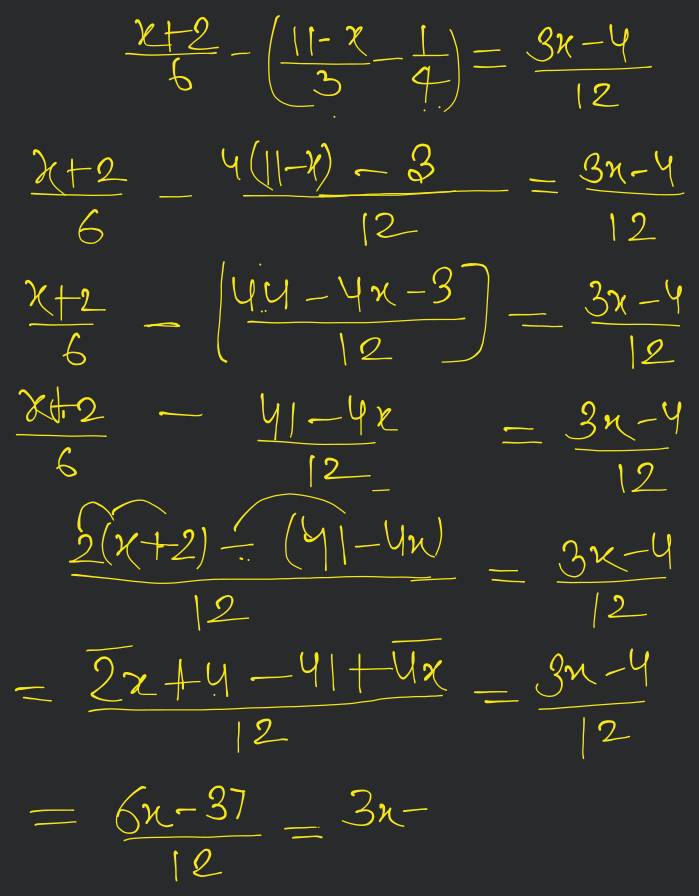 x+2/6 - (11-x/3 - 1/4) = 3x-4/12
x+2/6 - 4(11-x) - 3/12 = 3x-4/12
x+2/6 - [44-4x-3/12] = 3x-4/12
x+2/6 - 41-4x/12 = 3x-4/12
2(x+2) - (41-4x)/12 = 3x-4/12
= 2x+4-41+4x/12 = 3x-4/12
= 6x-37/12 = 3x-